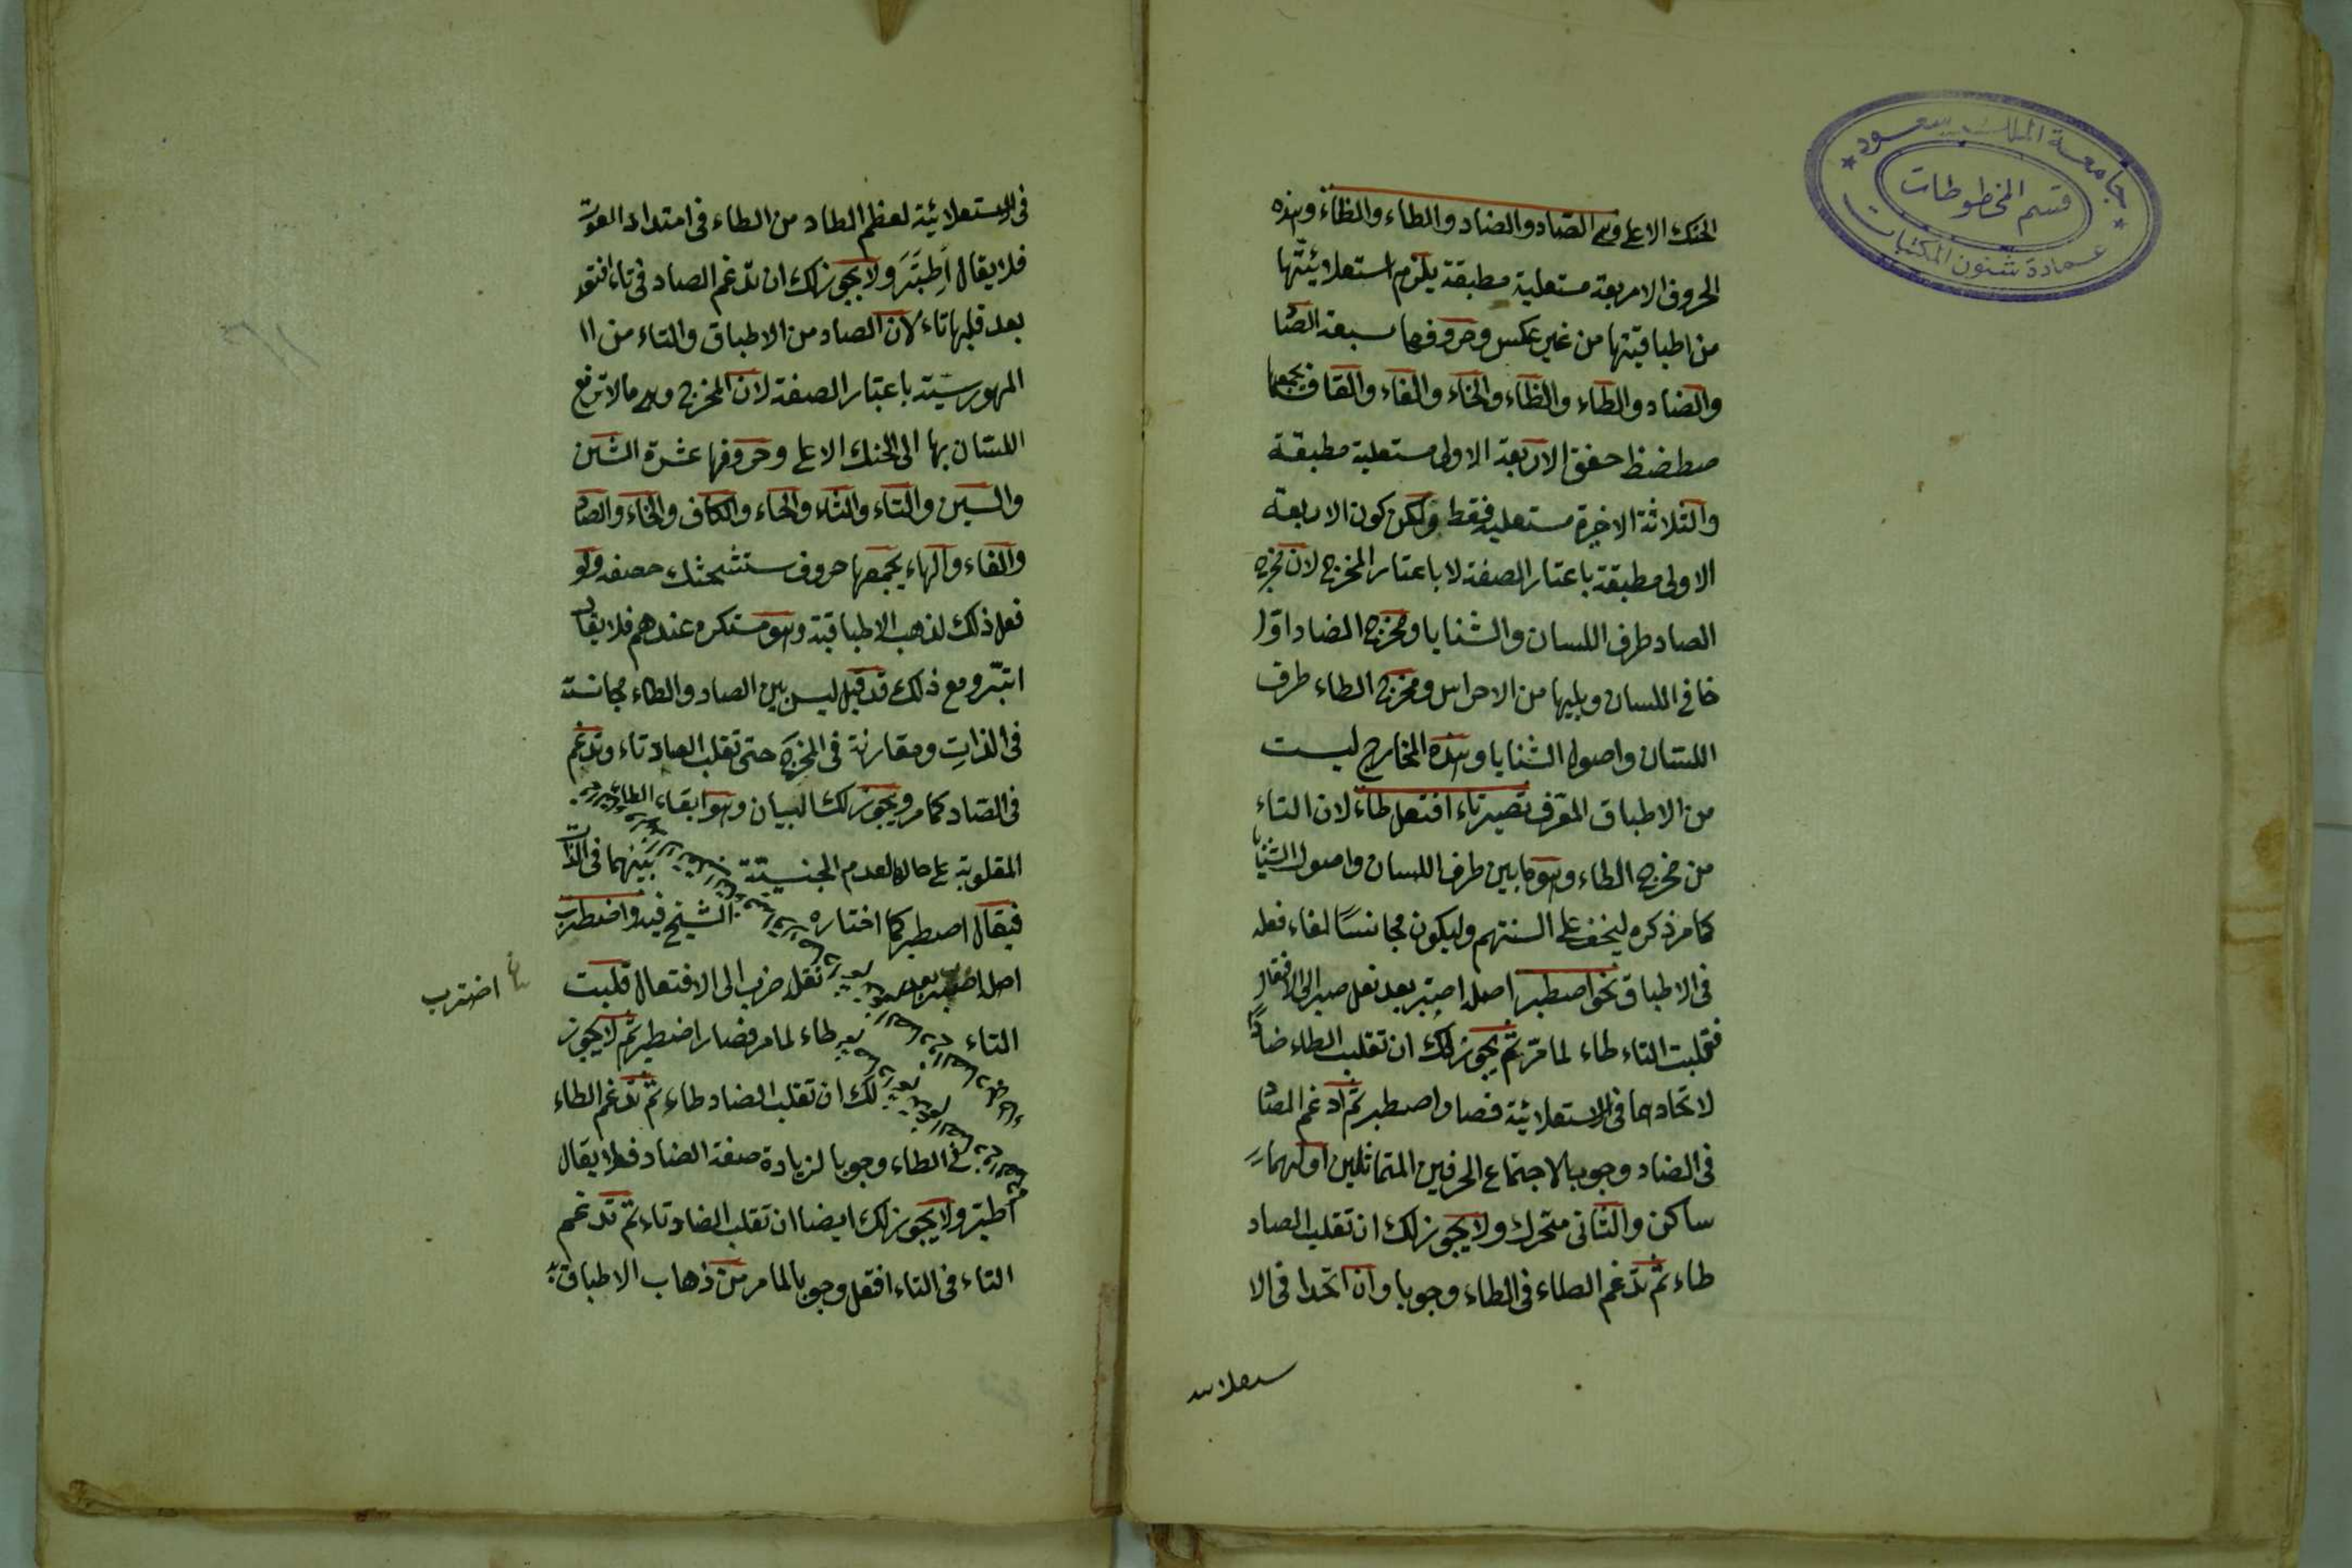 جامعة الملك سعود
قسم المخطوطات
عمادة شئون المكتبات
الحنك الاعلى وهى الصاد والضاد والطاء والظاء وهذه
الحروف الاربعة مستعلية مطبقة يلزم استعلائيتها
من اطباقيتها من غير عكس وحروفها سبعة الصا
والضاد والطاء والظاء والخاء والغاء والقاف يجمعها
صطضظ حفق الاربعة الاولى مستعلية مطبقة
والثلاثة الاخيرة مستعلية فقط ولكن كون الاربعة
الاولى مطبقة باعتبار الصفة لا باعتبار المخرج لان مخرج
الصاد طرف اللسان والثنايا ومخرج الضاد اول
حافى اللسان ويليها من الاضراس ومخرج الطاء طرف
اللسان واصول الثنايا وهذه المخارج ليست
من الاطباق المعرف تصير تاء افتعل طاء لان التاء
من مخرج الطاء وهو ما بين طرف اللسان واصول الثنايا
كما مر ذكره ليخف على السنتهم وليكون مجانسًا لفاء فعله
فى الاطباق نحو اصطبر اصله اصتبر بعد نقل صبر الى الافتعال
فقلبت التاء طاء لما مر ثم يجوز لك ان تقلب الطاء ضادًا
لاتحادهما فى الاستعلائية فصار اصطبر ثم ادغم الصا
فى الضاد وجوبا لاجتماع الحرفين المتماثلين اولهما
ساكن والثانى متحرك ولا يجوز لك ان تقلب الصاد
طاء ثم تدغم الطاء فى الطاء وجوبا وان اتحدا فى الا
ستعلائية
فى الاستعلائية لعظم الصاد من الطاء فى امتداد الصوت
فلا يقال اطبّر ولا يجوز لك ان تدغم الصاد فى تاء افتعل
بعد قلبها تاء لان الصاد من الاطباق والتاء من ال
المهموسية باعتبار الصفة لان المخرج وهى ما لا ترفع
اللسان بها الى الحنك الاعلى وحروفها عشرة الشين
والسين والتاء والثاء والحاء والكاف والخاء والصاد
والفاء والهاء يجمعها حروف ستشحثك خصفه ولو
فعل ذلك لذهب الاطباقية وهو مستكره عندهم فلا يقال
اتبّر ومع ذلك قد قيل ليس بين الصاد والطاء مجانسة
فى الذات ومقارنة فى المخرج حتى تقلب الصاد تاء وتدغم
فى الصاد كما مر ويجوز لك البيان وهو ابقاء الطاء
المقلوبة على حاله لعدم الجنسية بينهما فى الذات
فيقال اصطبر كما اختاره الشيخ فيه واضطرب
اصله بعد نقل ضرب الى الافتعال قلبت
اضترب
التاء طاء لما مر فصار اضطبر ثم لا يجوز
لك ان تقلب الضاد طاء ثم تدغم الطاء
فى الطاء وجوبا لزيادة صفة الضاد فلا يقال
اطبّر ولا يجوز لك ايضا ان تقلب الضاد تاء ثم تدغم
التاء فى التاء افتعل وجوبا لما مر من ذهاب الاطباقية